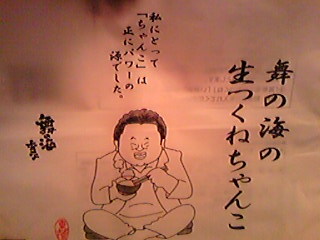 舞の海の
生つくねちゃんこ
私にとって
「ちゃんこ」は
正にパワーの
源でした。
舞の海